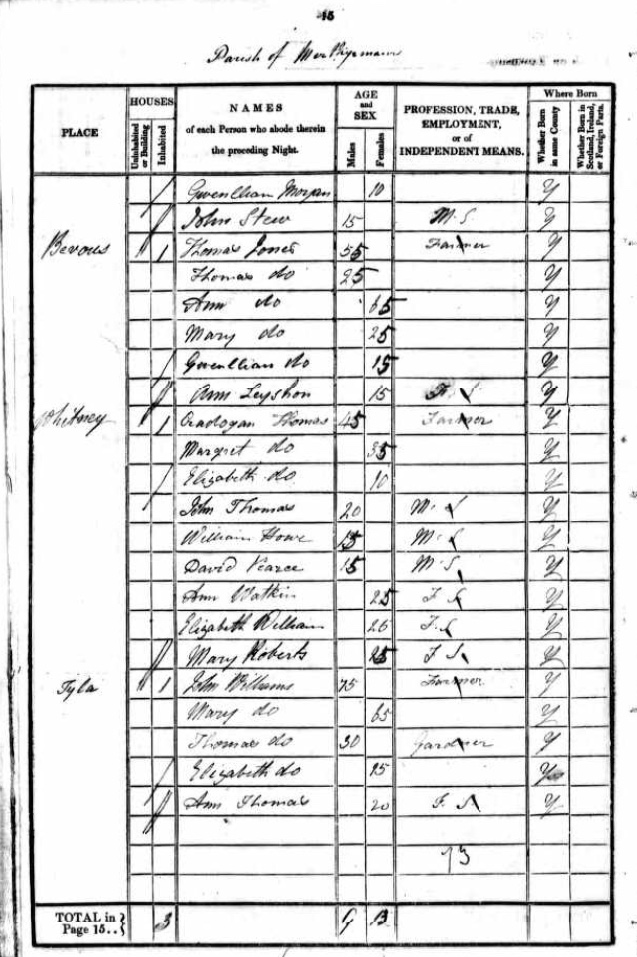 15
Parish of
PLACE HOUSES Uninhabited or Building Inhabited NAMES of each Person who abode therein the preceding Night. AGE and SEX Males Females PROFESSION, TRADE, EMPLOYMENT, or of INDEPENDENT MEANS. Where Born Whether Born in same County Whether Born in Scotland, Ireland, or Foreign Parts.
Gwenllian Morgan 10 Y
John Stew 15 M. S Y
Bevous 1 Thomas Jones 55 Farmer Y
Thomas do 25 Y
Ann do 65 Y
Mary do 25 Y
Gwenllian do 15 Y
Ann Leyshon 15 F. S Y
Whitney 1 Cradogan Thomas 45 Farmer Y
Margret do 35 Y
Elizabeth do 10 Y
John Thomas 20 M. S Y
William Howe 15 M. S Y
David Pearce 15 M. S Y
Ann Watkin 25 F. S Y
Elizabeth William 25 F. S Y
Mary Roberts 25 F S. Y
Tyla 1 John Williams 75 Farmer Y
Mary do 65 Y
Thomas do 30 Gardner Y
Elizabeth do 25 Yes
Ann Thomas 20 F. S Y
TOTAL in Page 15.. 3 9 13